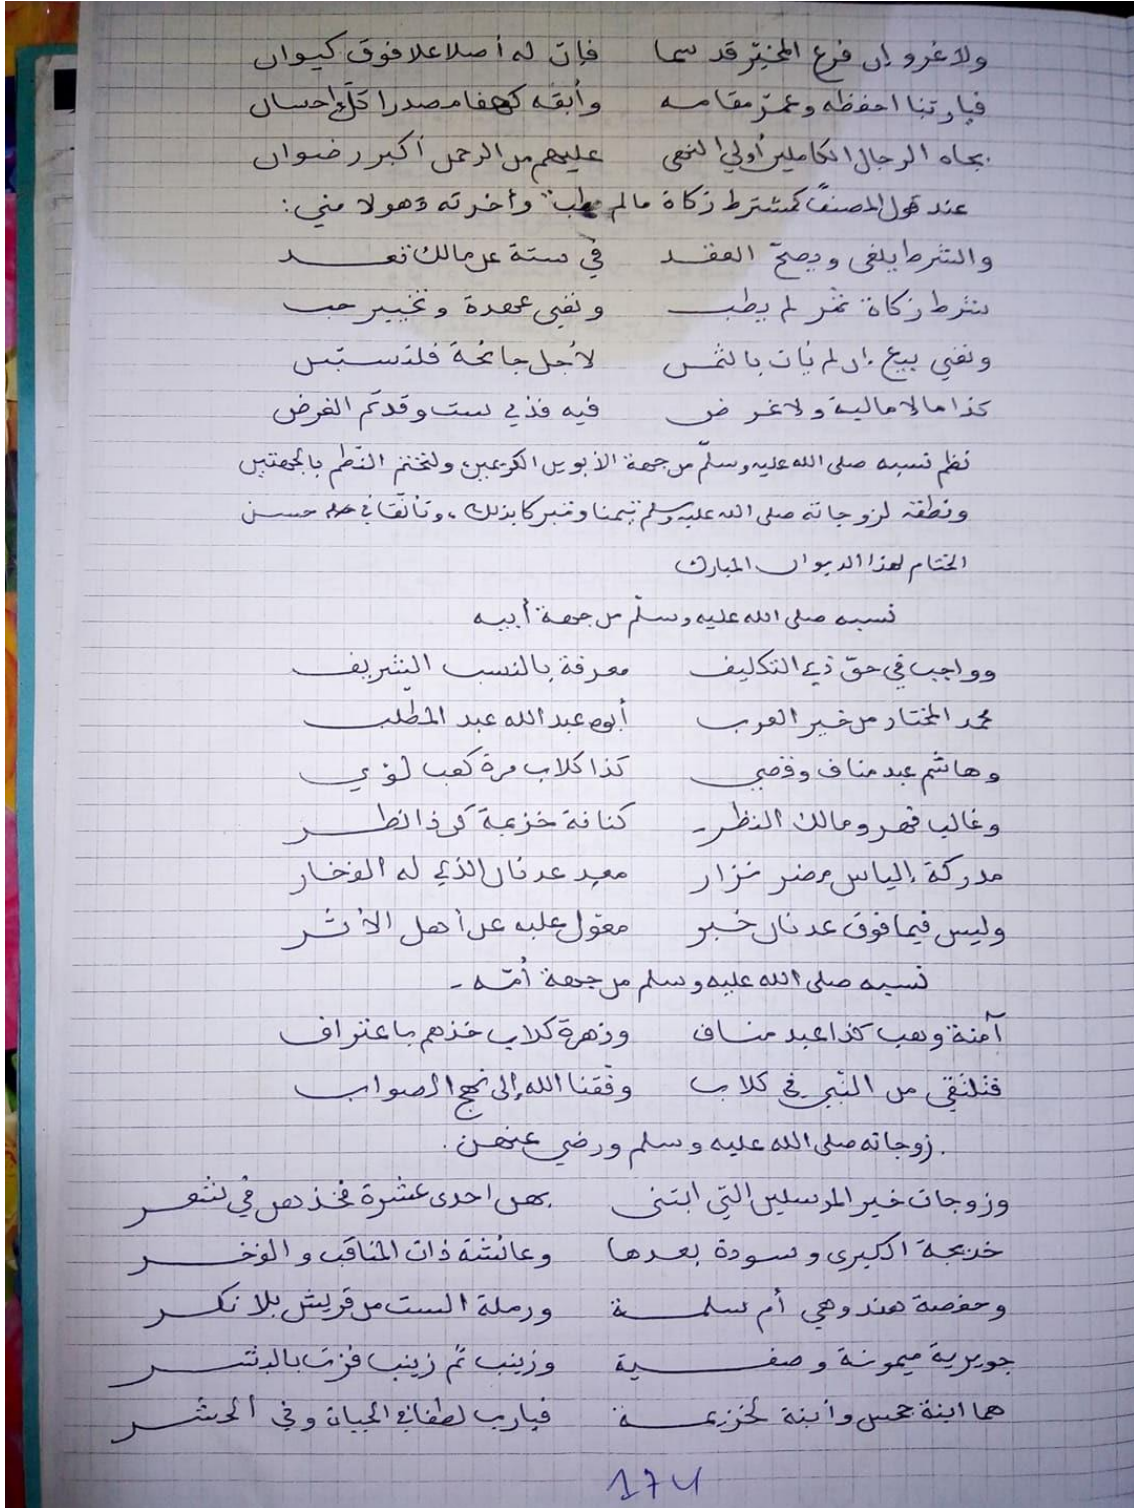 ولا غرو إن فرع المخيتر قد سما فإن له أصلا علا فوق كيوان
فيا ربنا احفظه وعمر مقامه وأبقه كهفا مصدرا كل إحسان
بجاه الرجال الكاملين أولي النهى عليهم من الرحمن أكبر رضوان
عند قول المصنف كمشترط زكاة ما لم يطب وأخرته وهولا مني:
والشرط يلغى ويصح العقد في ستة عن مالك تعد
شرط زكاة ثمر لم يطب ونفي عهدة وتخيير حب
ونفي بيع إن لم يات بالثمن لأجل جائحة فلتستبن
كذا ما لا مالية ولا غرض فيه فذي ست وقد تم الغرض
نظم نسبه صلى الله عليه وسلم من جهة الأبوين الكريمين ولنختم النظم بالجهتين
ونظمه لزوجاته صلى الله عليه وسلم تيمنا وتبركا بذلك، وتأنقا في حسن
الختام لهذا الديوان المبارك
نسبه صلى الله عليه وسلم من جهة أبيه
وواجب في حق ذي التكليف معرفة بالنسب الشريف
محمد المختار من خير العرب أبوه عبد الله عبد المطلب
وهاشم عبد مناف وقصي كذا كلاب مرة كعب لؤي
وغالب فهر ومالك النظر كنانة خزيمة كن ذا نظر
مدركة إلياس مضر نزار معد عدنان الذي له الفخار
وليس فيما فوق عدنان خبر معول عليه عن أهل الأثر
نسبه صلى الله عليه وسلم من جهة أمه
آمنة وهب كذا عبد مناف وزهرة كلاب خذهم باعتراف
فتلتقي من النبي في كلاب وفقنا الله إلى نهج الصواب
زوجاته صلى الله عليه وسلم ورضي عنهن.
وزوجات خير المرسلين التي ابتنى بهن احدى عشرة فخذهن في شعر
خديجة الكبرى وسودة بعدها وعائشة ذات المناقب والفخر
وحفصة هند وهي أم سلمة ورملة الست من قريش بلا نكر
جويرية ميمونة وصفية وزينب ثم زينب فزت بالبشر
هما ابنة جحش وأبنة لخزيمة فيا رب لطفا في الحياة وفي الحشر
174